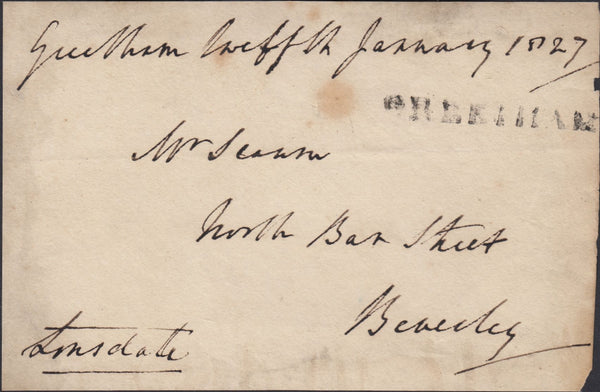 Greetham twelfth January 1827
GREETHAM
Mr
North Bar Street
Beverley
Lonsdale